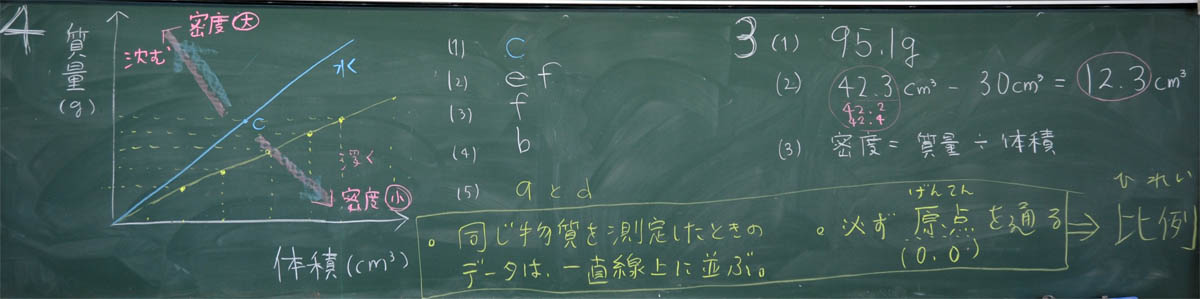 4
質量(g)
密度大
沈む
水
C
浮く
密度小
体積(cm³)
(1) C
(2) e f
(3) f
(4) b
(5) a と d
3
(1) 95.1g
(2) 42.3cm³ - 30cm³ = 12.3cm³
42.2
42.4
(3) 密度 = 質量 ÷ 体積
。同じ物質を測定したときの
データは、一直線上に並ぶ。
げんてん
。必ず原点を通る
(0,0)
⇒
ひれい
比例